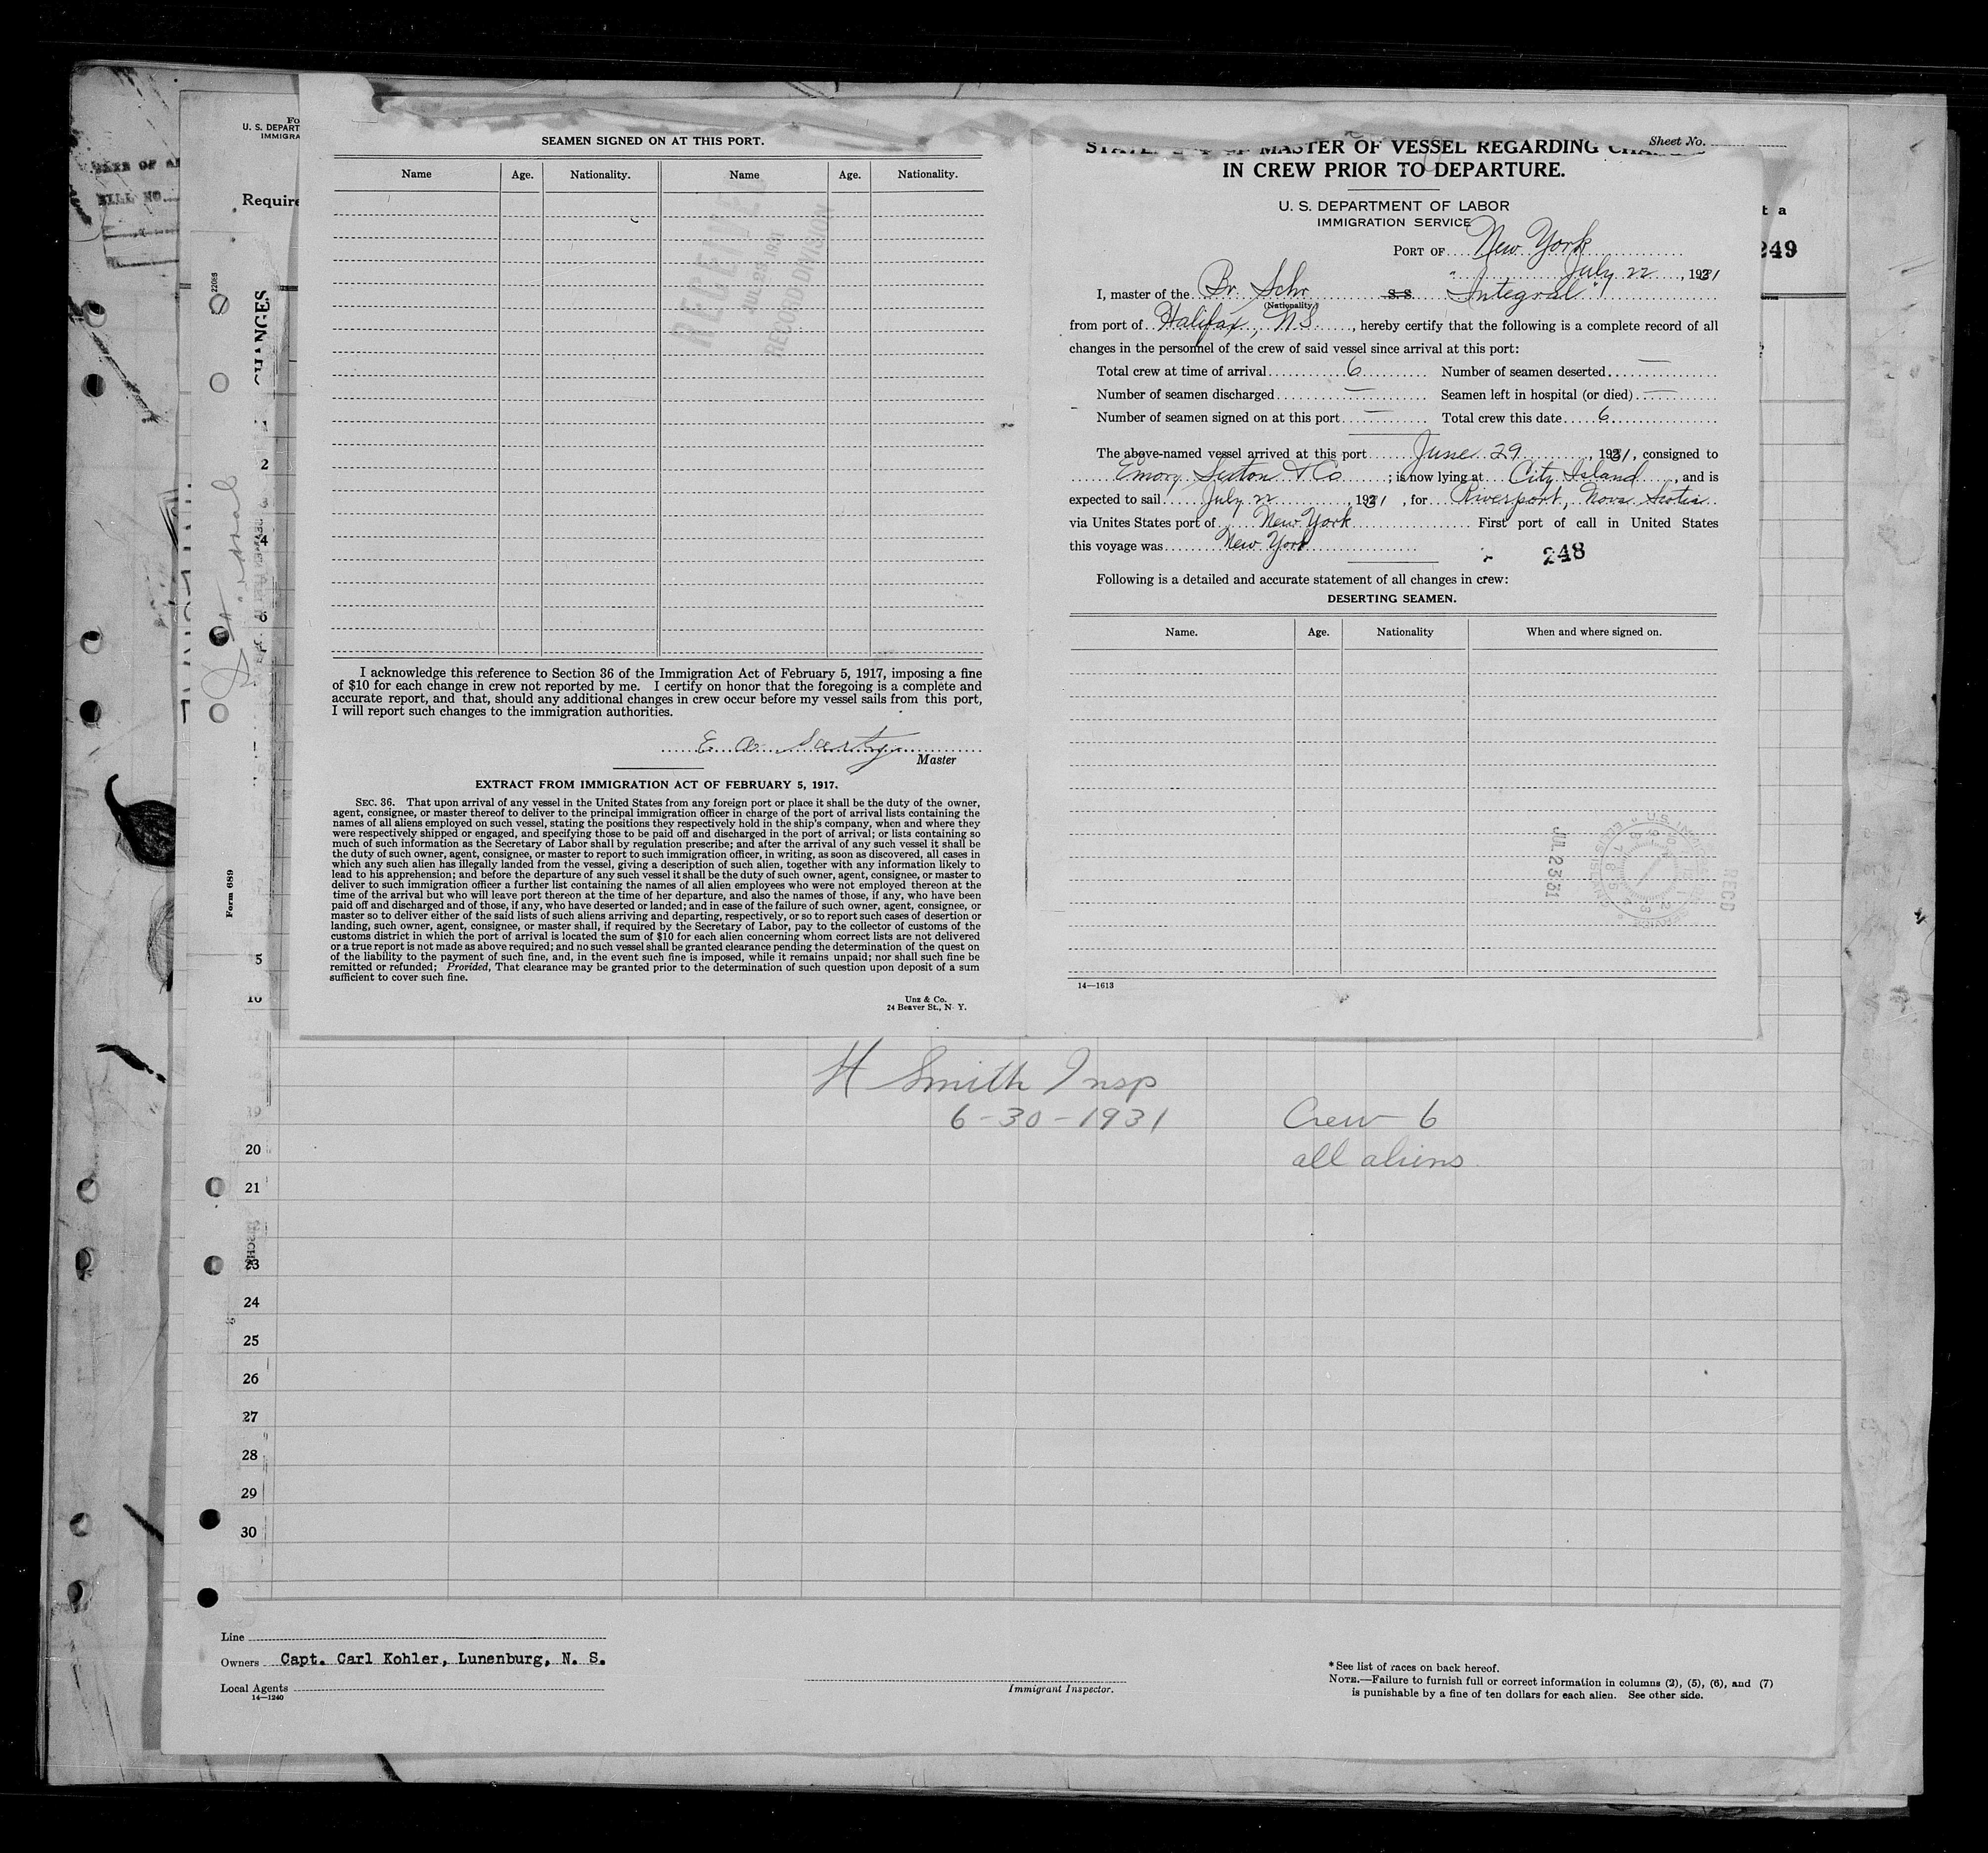 SEAMEN SIGNED ON AT THIS PORT.
Name Age. Nationality. Name Age. Nationality.
RECEIVED
JUL 28 1931
RECORD DIVISION
I acknowledge this reference to Section 36 of the Immigration Act of February 5, 1917, imposing a fine
of $10 for each change in crew not reported by me. I certify on honor that the foregoing is a complete and
accurate report, and that, should any additional changes in crew occur before my vessel sails from this port,
I will report such changes to the immigration authorities.
E. A. Sarty
Master
EXTRACT FROM IMMIGRATION ACT OF FEBRUARY 5, 1917.
SEC. 36. That upon arrival of any vessel in the United States from any foreign port or place it shall be the duty of the owner,
agent, consignee, or master thereof to deliver to the principal immigration officer in charge of the port of arrival lists containing the
names of all aliens employed on such vessel, stating the positions they respectively hold in the ship's company, when and where they
were respectively shipped or engaged, and specifying those to be paid off and discharged in the port of arrival; or lists containing so
much of such information as the Secretary of Labor shall by regulation prescribe; and after the arrival of any such vessel it shall be
the duty of such owner, agent, consignee, or master to report to such immigration officer, in writing, as soon as discovered, all cases in
which any such alien has illegally landed from the vessel, giving a description of such alien, together with any information likely to
lead to his apprehension; and before the departure of any such vessel it shall be the duty of such owner, agent, consignee, or master to
deliver to such immigration officer a further list containing the names of all alien employees who were not employed thereon at the
time of the arrival but who will leave port thereon at the time of her departure, and also the names of those, if any, who have been
paid off and discharged and of those, if any, who have deserted or landed; and in case of the failure of such owner, agent, consignee, or
master so to deliver either of the said lists of such aliens arriving and departing, respectively, or so to report such cases of desertion or
landing, such owner, agent, consignee, or master shall, if required by the Secretary of Labor, pay to the collector of customs of the
customs district in which the port of arrival is located the sum of $10 for each alien concerning whom correct lists are not delivered
or a true report is not made as above required; and no such vessel shall be granted clearance pending the determination of the quest on
of the liability to the payment of such fine, and, in the event such fine is imposed, while it remains unpaid; nor shall such fine be
remitted or refunded; Provided, That clearance may be granted prior to the determination of such question upon deposit of a sum
sufficient to cover such fine.
Unz & Co.
24 Beaver St., N. Y.
Sheet No.
MASTER OF VESSEL REGARDING
IN CREW PRIOR TO DEPARTURE.
U. S. DEPARTMENT OF LABOR
IMMIGRATION SERVICE
PORT OF New York
July 22, 1931
I, master of the Br. Schr. S S Integral
(Nationality)
from port of Halifax, N.S., hereby certify that the following is a complete record of all
changes in the personnel of the crew of said vessel since arrival at this port:
Total crew at time of arrival 6 Number of seamen deserted —
Number of seamen discharged — Seamen left in hospital (or died) —
Number of seamen signed on at this port — Total crew this date 6
The above-named vessel arrived at this port June 29, 1931, consigned to
Emory Sexton & Co; is now lying at City Island, and is
expected to sail July 22, 1931, for Riverport, Nova Scotia
via Unites States port of New York First port of call in United States
this voyage was New York
248
Following is a detailed and accurate statement of all changes in crew:
DESERTING SEAMEN.
Name. Age. Nationality When and where signed on.
JUL 23 31
RECD
14—1613
249
t a
Fo
U. S. DEPART
IMMIGRA
Require
Form 689
2
4
5
H Smith Insp
6-30-1931
Crew 6
all aliens
20
21
23
24
25
26
27
28
29
30
Line
Owners Capt. Carl Kohler, Lunenburg, N. S.
Local Agents
14—1240
Immigrant Inspector.
* See list of races on back hereof.
NOTE.—Failure to furnish full or correct information in columns (2), (5), (6), and (7)
is punishable by a fine of ten dollars for each alien. See other side.